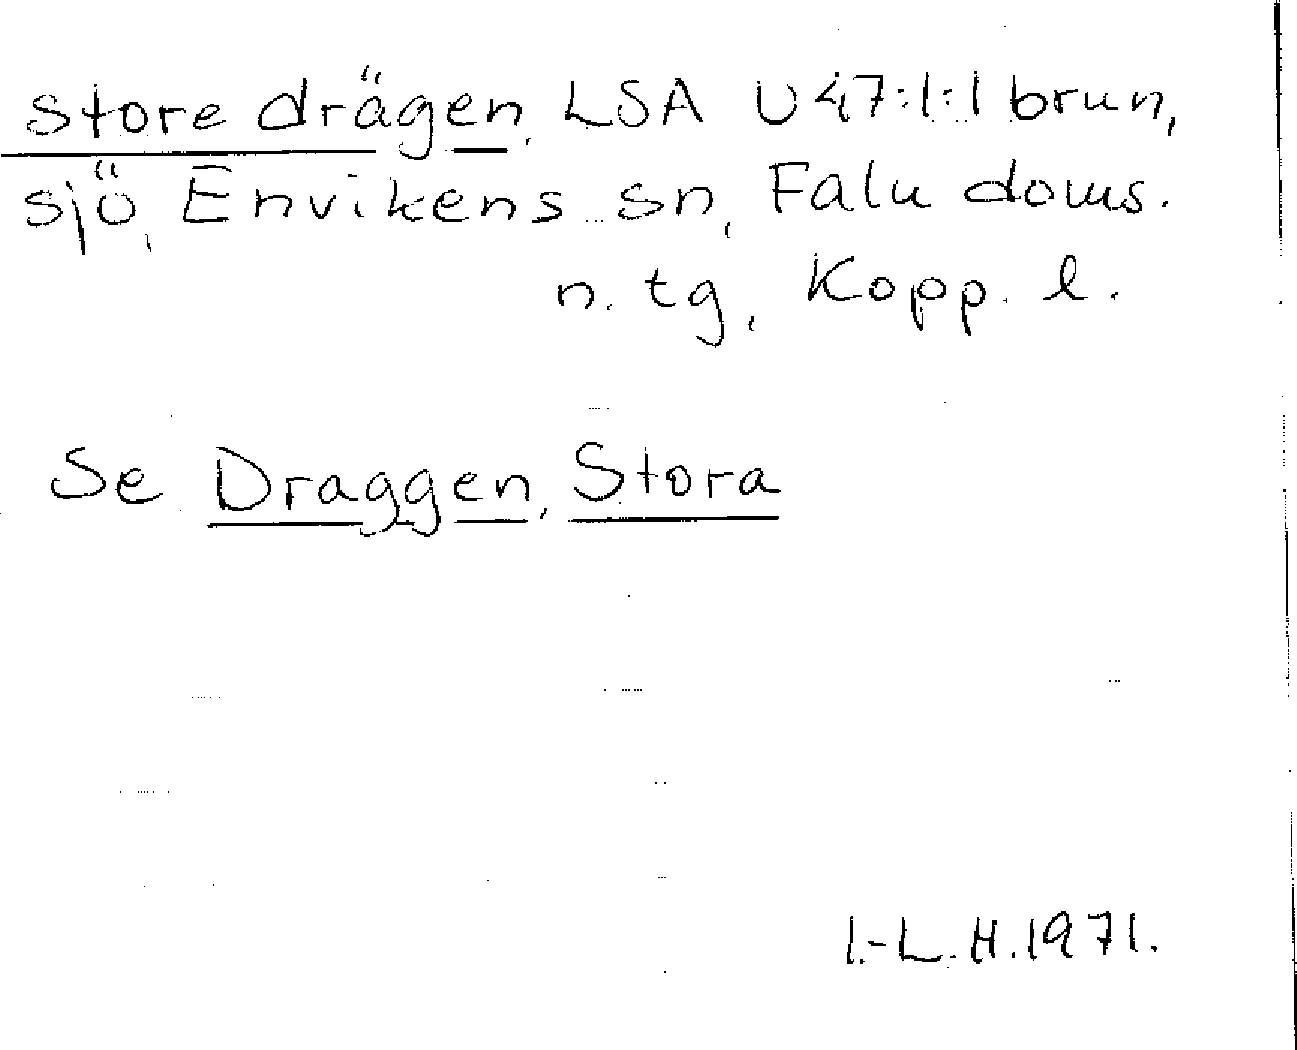 store drägen, LSA U 47:1:1 brun,
sjö, Envikens sn, Falu doms.
n. tg, Kopp. l.
Se Draggen, Stora
I.-L. H. 1971.